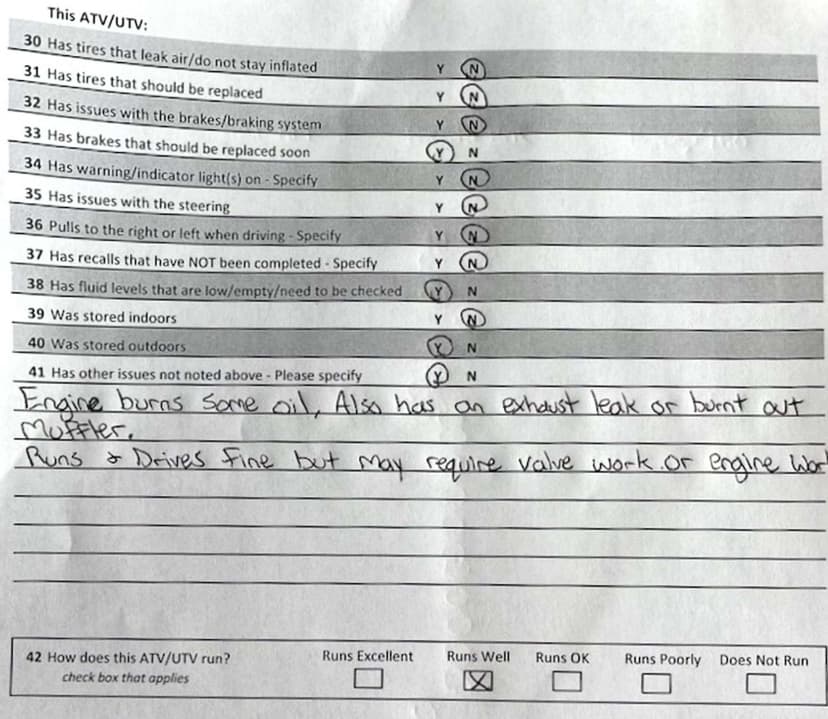 This ATV/UTV:
30 Has tires that leak air/do not stay inflated Y N
31 Has tires that should be replaced Y N
32 Has issues with the brakes/braking system Y N
33 Has brakes that should be replaced soon Y N
34 Has warning/indicator light(s) on - Specify Y N
35 Has issues with the steering Y N
36 Pulls to the right or left when driving - Specify Y N
37 Has recalls that have NOT been completed - Specify Y N
38 Has fluid levels that are low/empty/need to be checked Y N
39 Was stored indoors Y N
40 Was stored outdoors Y N
41 Has other issues not noted above - Please specify Y N
Engine burns some oil, Also has an exhaust leak or burnt out
Muffler.
Runs & Drives fine but may require valve work or engine wor
42 How does this ATV/UTV run? Runs Excellent Runs Well Runs OK Runs Poorly Does Not Run
check box that applies